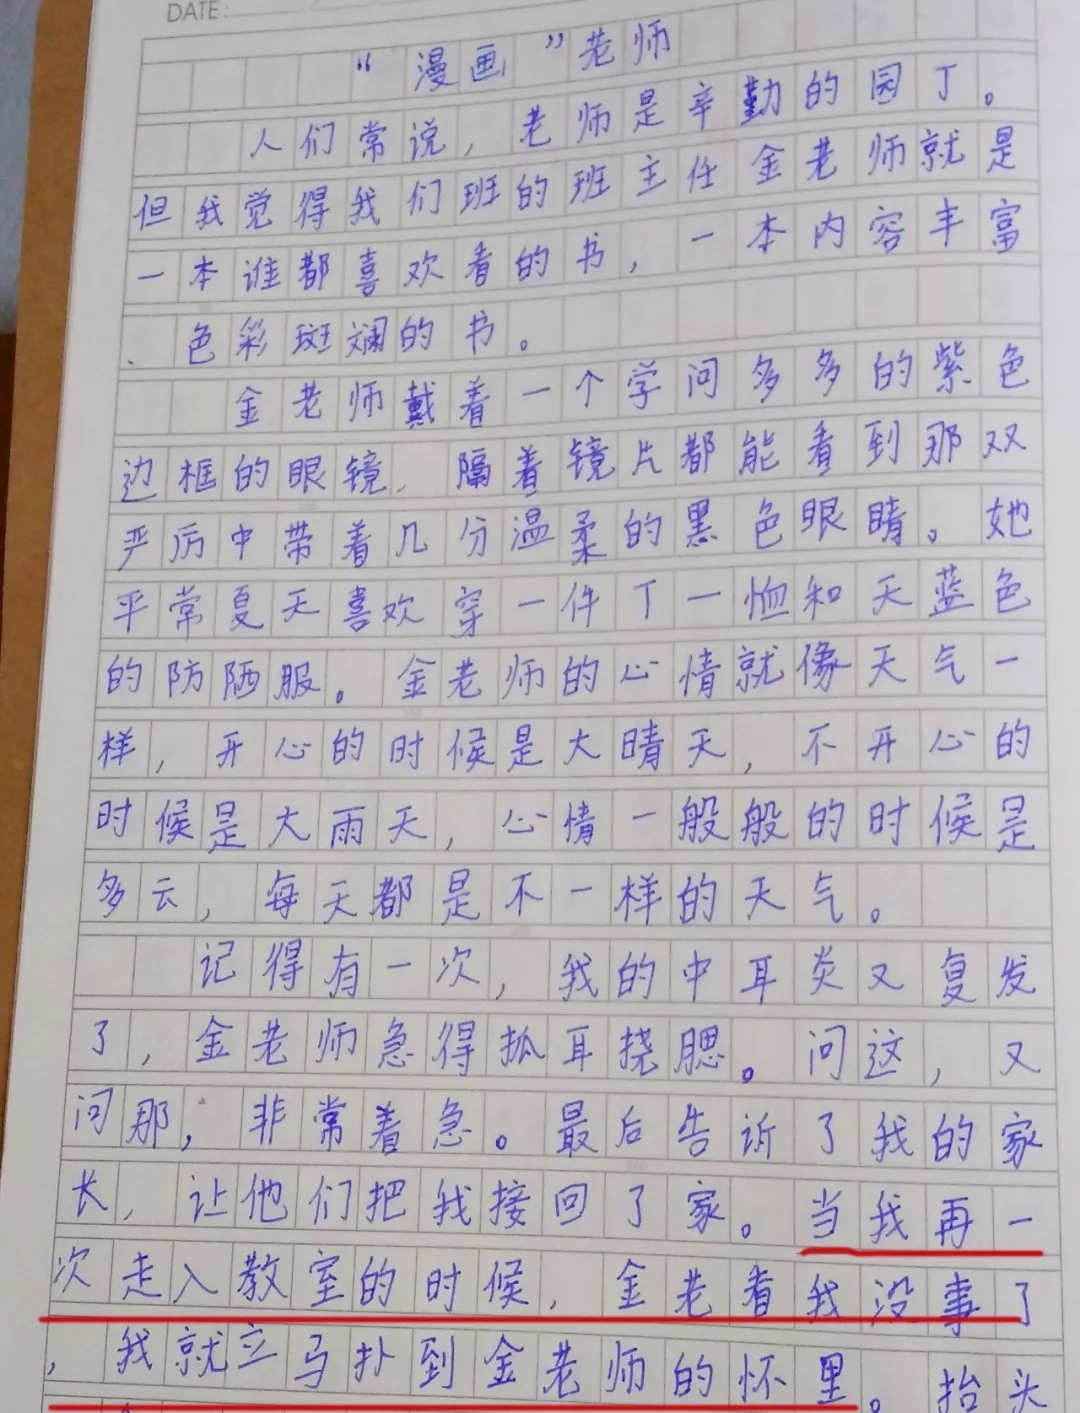 DATE:
“漫画”老师
人们常说，老师是辛勤的园丁。
但我觉得我们班的班主任金老师就是
一本谁都喜欢看的书，一本内容丰富
、色彩斑斓的书。
金老师戴着一个学问多多的紫色
边框的眼镜，隔着镜片都能看到那双
严厉中带着几分温柔的黑色眼睛。她
平常夏天喜欢穿一件丁一恤和天蓝色
的防晒服。金老师的心情就像天气一
样，开心的时候是大晴天，不开心的
时候是大雨天，心情一般般的时候是
多云，每天都是不一样的天气。
记得有一次，我的中耳炎又复发
了，金老师急得抓耳挠腮。问这，又
问那，非常着急。最后告诉了我的家
长，让他们把我接回了家。当我再一
次走入教室的时候，金老看我没事了
，我就立马扑到金老师的怀里。抬头